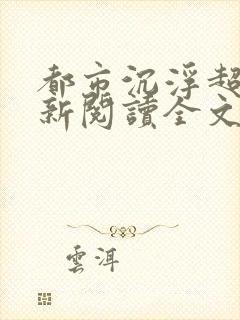 都市沉浮超
新閱讀全文
雲洱